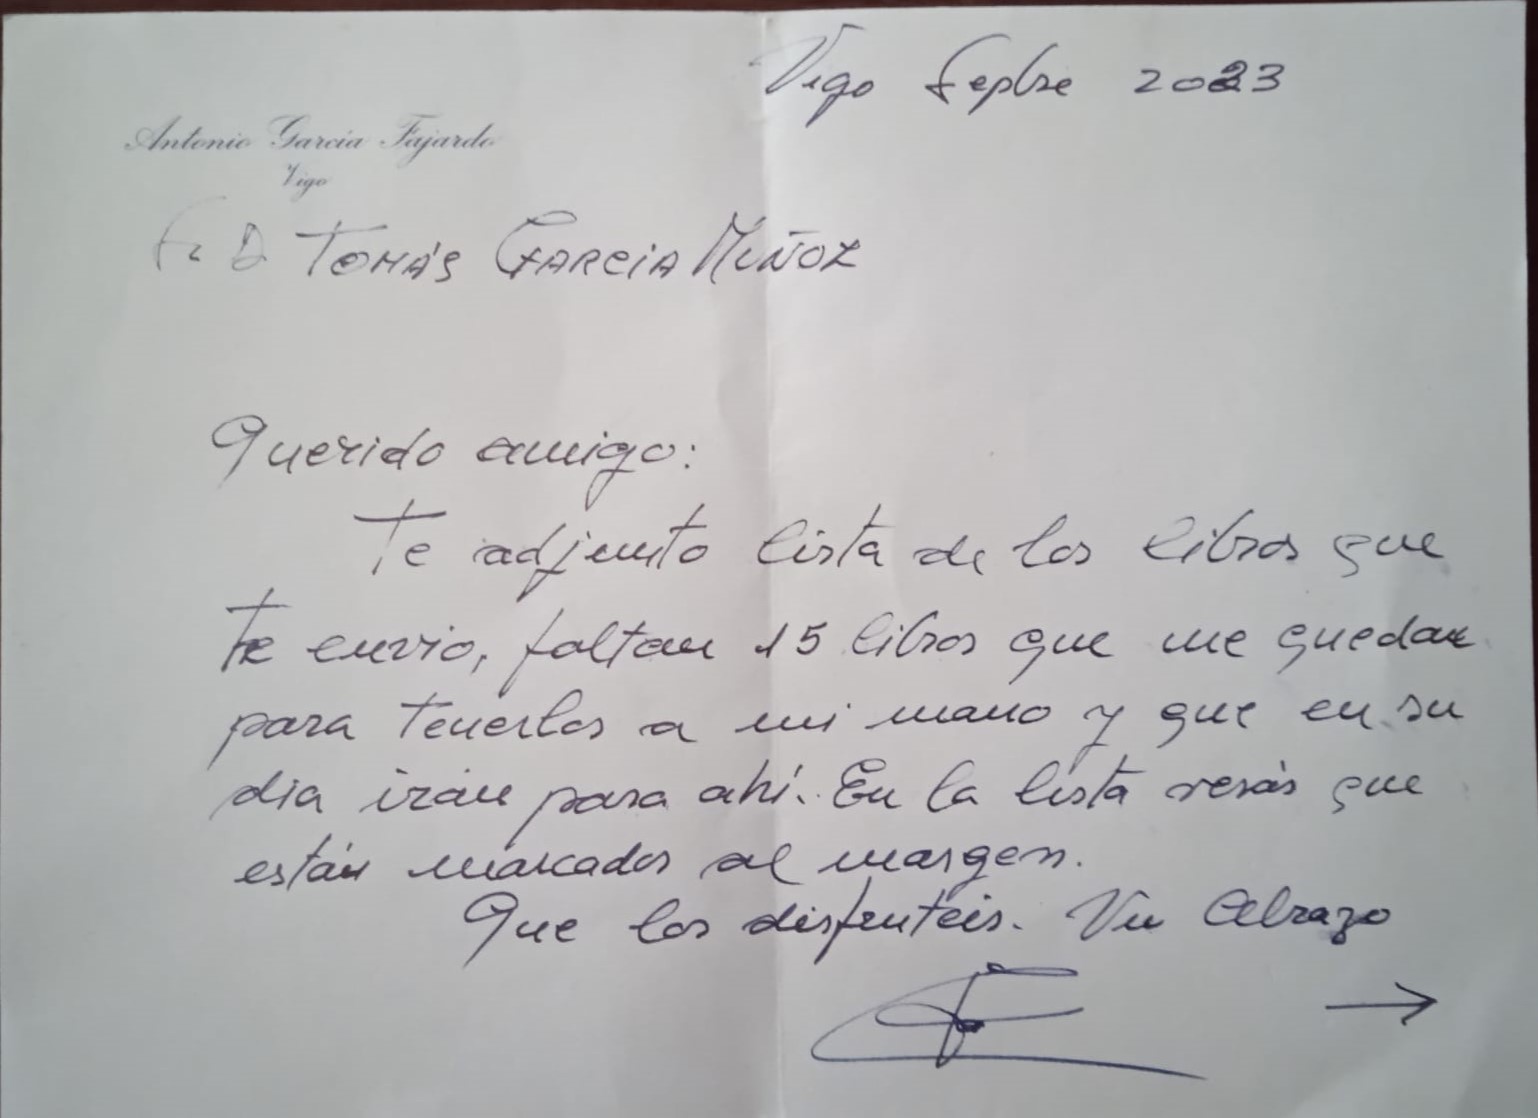 Vigo Sepbre 2023
Antonio García Fajardo
Vigo
D TOMÁS GARCIA MUÑOZ
Querido amigo:
Te adjunto lista de los libros que
te envio, faltan 15 libros que me quedan
para tenerlos a mi mano y que en su
dia irán para ahí. En la lista verás que
están marcados al margen.
Que los disfruteis. Un abrazo
→